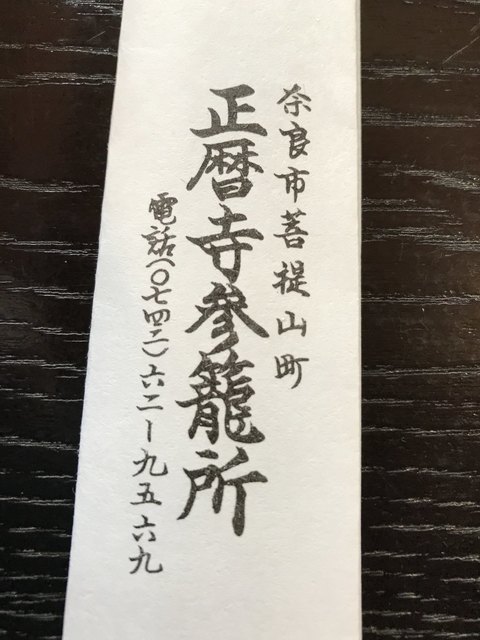 奈良市菩提山町
正暦寺参籠所
電話(〇七四二)六二ー九五六九